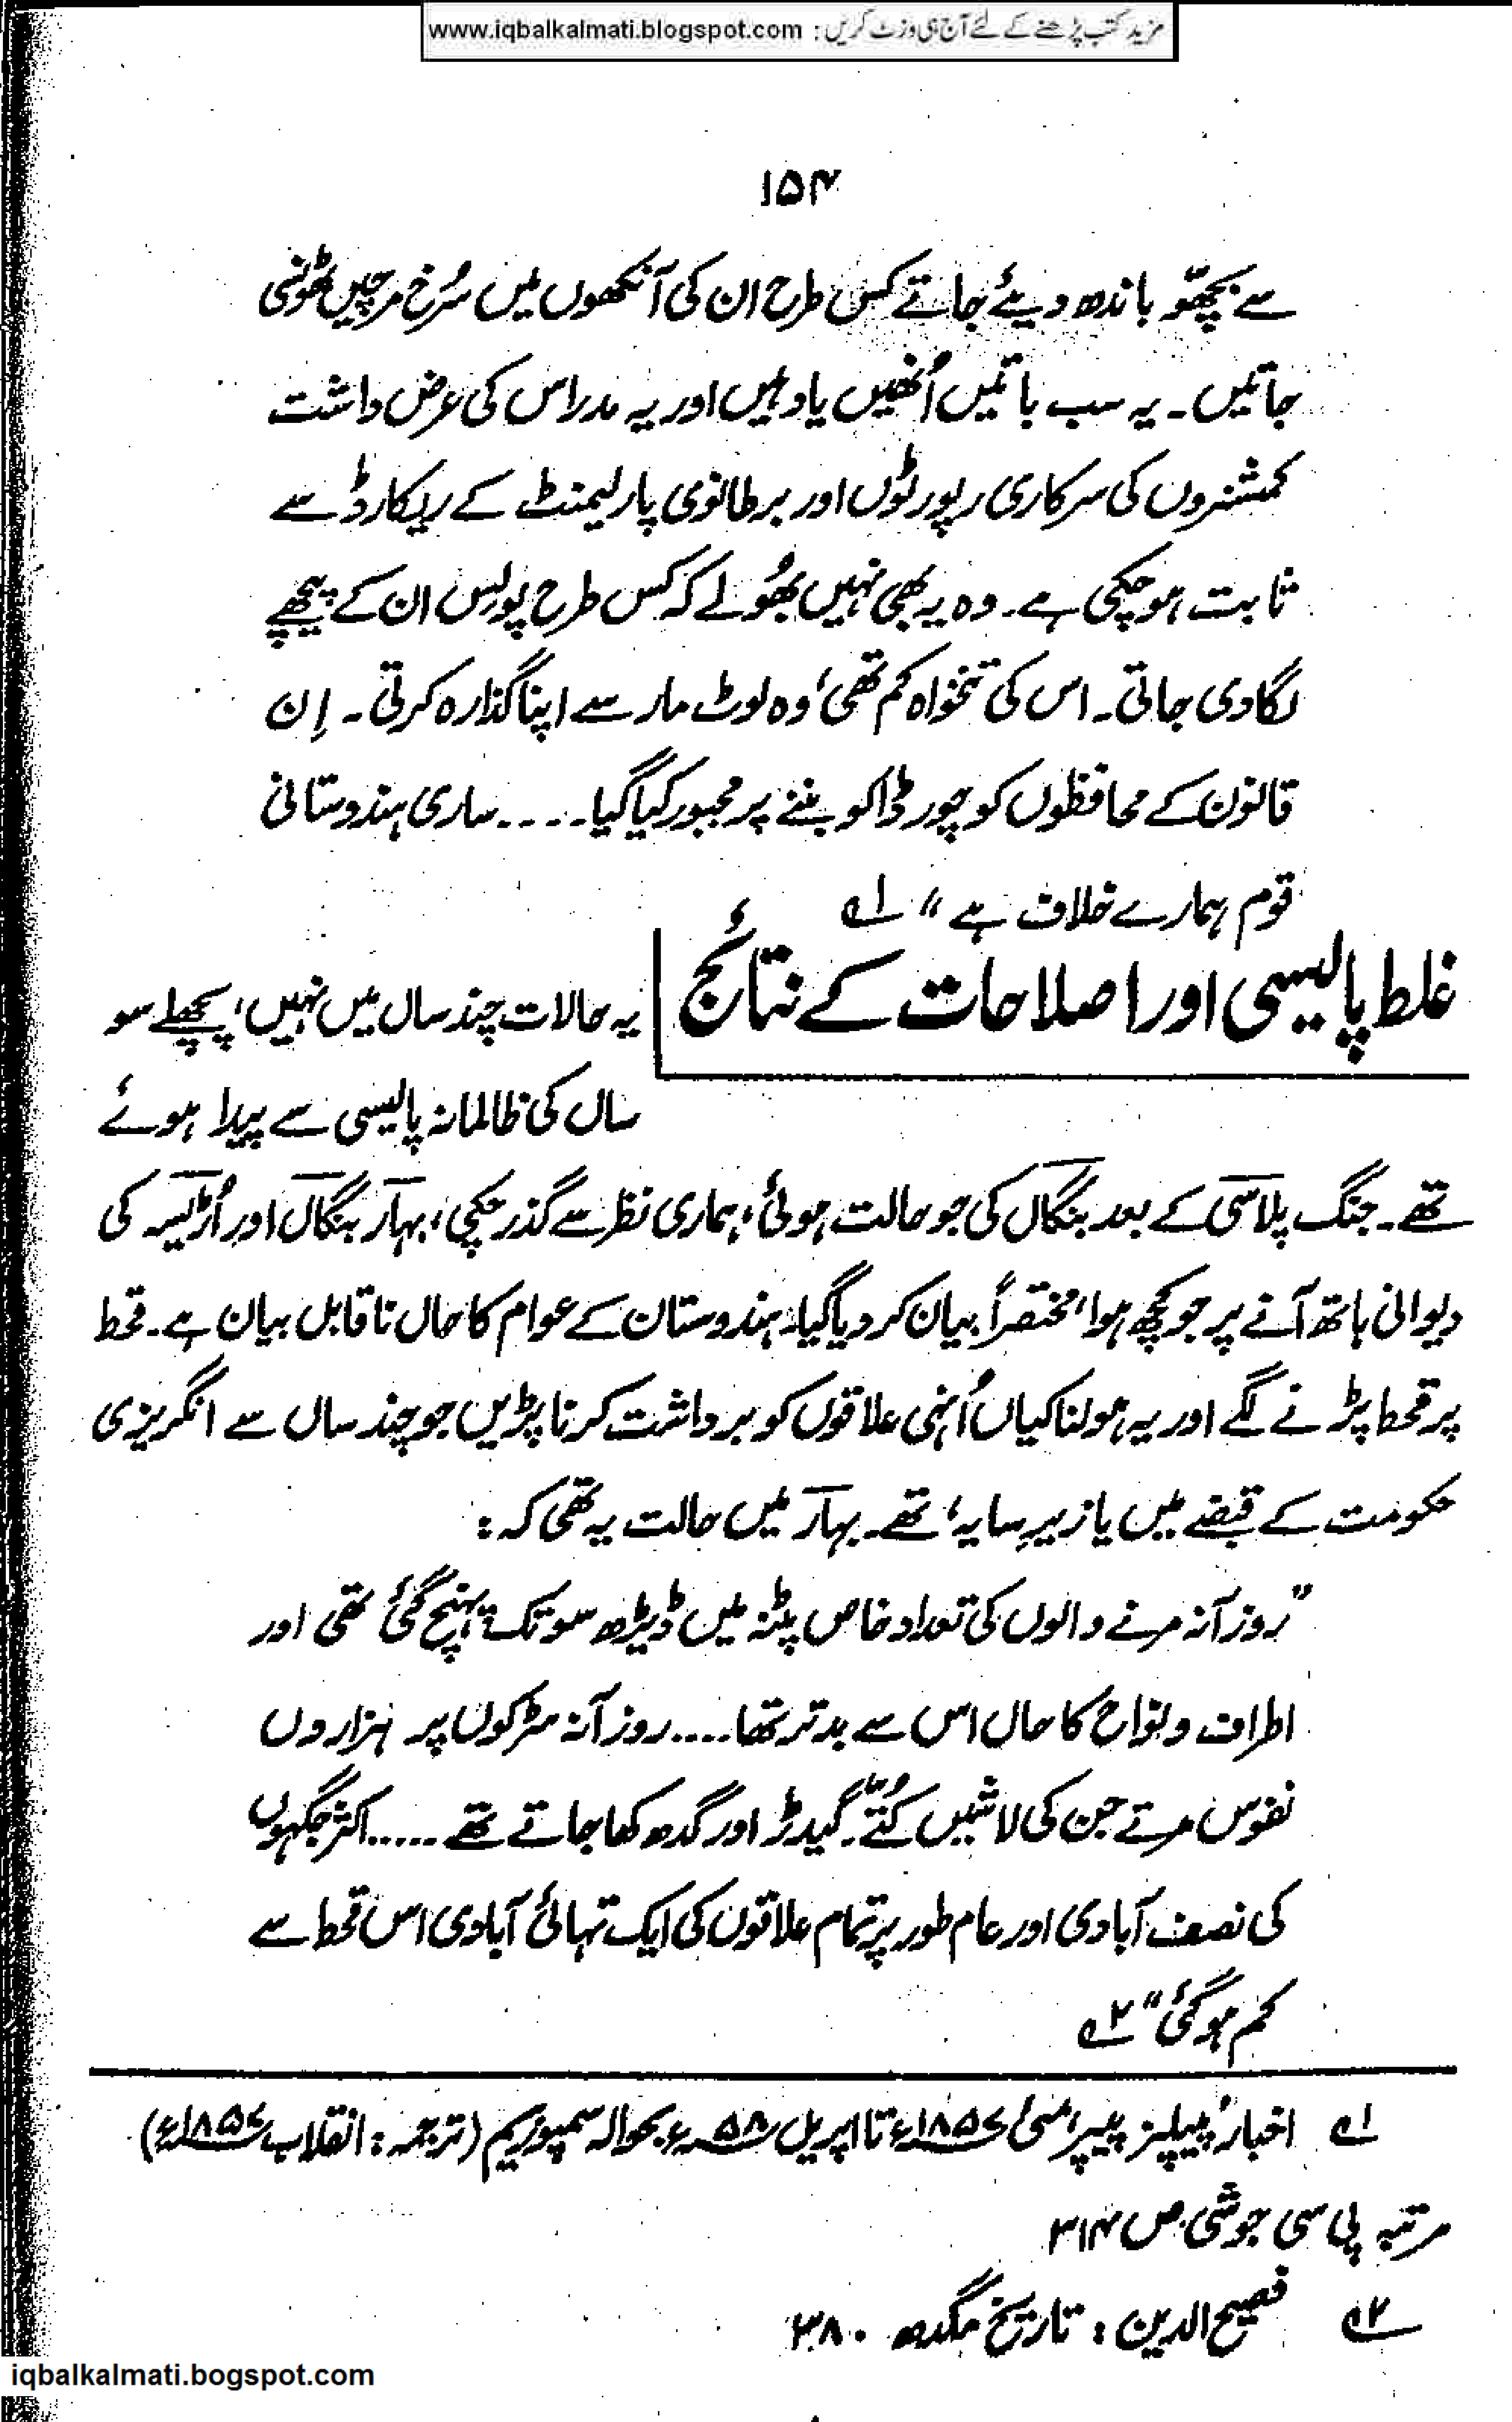 مزید کتب پڑھنے کے لئے آج ہی وزٹ کریں : www.iqbalkalmati.blogspot.com
۱۵۴
سے بچھّو باندھ دیئے جاتے کس طرح ان کی آنکھوں میں سُرخ مرچیں ٹھونسی
جاتیں۔ یہ سب باتیں اُنھیں یاد ہیں اور یہ مدراس کی عرض داشت
کمشنروں کی سرکاری رپورٹوں اور برطانوی پارلیمنٹ کے ریکارڈ سے
ثابت ہوچکی ہے۔ وہ یہ بھی نہیں بھُولے کہ کس طرح پولس ان کے پیچھے
لگادی جاتی۔ اس کی تنخواہ کم تھی، وہ لوٹ مار سے اپنا گذارہ کرتی۔ اِن
قانون کے محافظوں کو چور ڈاکو بننے پر مجبور کیا گیا۔۔۔۔ ساری ہندوستانی
قوم ہمارے خلاف ہے” ؂۱
غلط پالیسی اور اصلاحات کے نتائج
یہ حالات چند سال میں نہیں، پچھلے سو
سال کی ظالمانہ پالیسی سے پیدا ہوئے
تھے۔ جنگ پلاسی کے بعد بنگال کی جو حالت ہوئی، ہماری نظر سے گذر چکی، بہار بنگال اور اُڑیسہ کی
دیوانی ہاتھ آنے پر جو کچھ ہوا، مختصراً بیان کردیا گیا۔ ہندوستان کے عوام کا حال ناقابل بیان ہے۔ قحط
پر قحط پڑنے لگے اور یہ ہولناکیاں اُنہی علاقوں کو برداشت کرنا پڑیں جو چند سال سے انگریزی
حکومت کے قبضے میں یا زیرِ سایہ، تھے۔ بہار میں حالت یہ تھی کہ :
”روزآنہ مرنے والوں کی تعداد خاص پٹنہ میں ڈیڑھ سو تک پہنچ گئی تھی اور
اطراف ونواح کا حال اس سے بدتر تھا۔۔۔۔ روزآنہ سڑکوں پر ہزاروں
نفوس مرتے جن کی لاشیں کُتّے۔ گیدڑ اور گدھ کھا جاتے تھے ۔۔۔۔۔ اکثر جگہوں
کی نصف آبادی اور عام طور پر تمام علاقوں کی ایک تہائی آبادی اس قحط سے
کم ہوگئی“ ؂۲
؂۱ اخبار ’پیپلز پیپر‘ مئی ۱۸۵۷ء تا اپریل ۵۸ء بحوالہ سمپوزیم (ترجمہ : انقلاب ۱۸۵۷ء)
مرتبہ پی سی جوشی ص ۳۱۴
؂۲ فصیح الدین : تاریخ مگدھ ۳۸۰
iqbalkalmati.bogspot.com